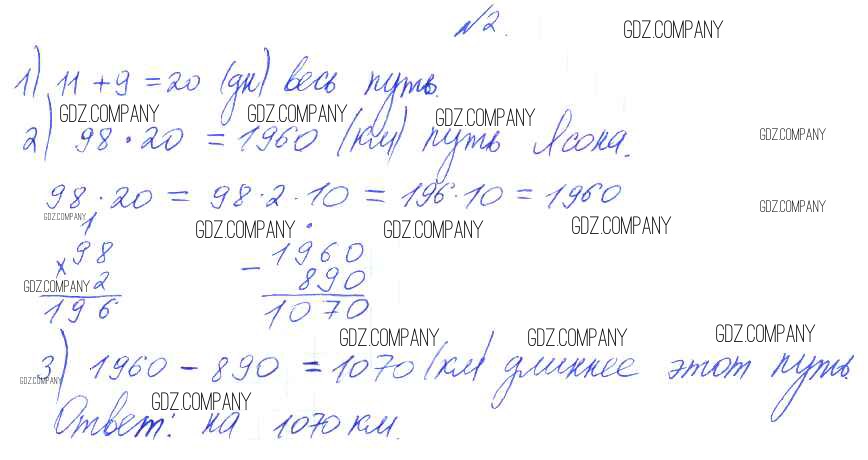 №2. GDZ.COMPANY
1) 11 + 9 = 20 (дн) весь путь.
GDZ.COMPANY GDZ.COMPANY GDZ.COMPANY
2) 98 · 20 = 1960 (км) путь Ясона. GDZ.COMPANY
98 · 20 = 98 · 2 · 10 = 196 · 10 = 1960 GDZ.COMPANY
GDZ.COMPANY GDZ.COMPANY GDZ.COMPANY GDZ.COMPANY
1 .
× 98 − 1960
GDZ.COMPANY 2 890
196 1070
GDZ.COMPANY GDZ.COMPANY GDZ.COMPANY
3) 1960 − 890 = 1070 (км) длиннее этот путь.
GDZ.COMPANY GDZ.COMPANY
Ответ: на 1070 км.